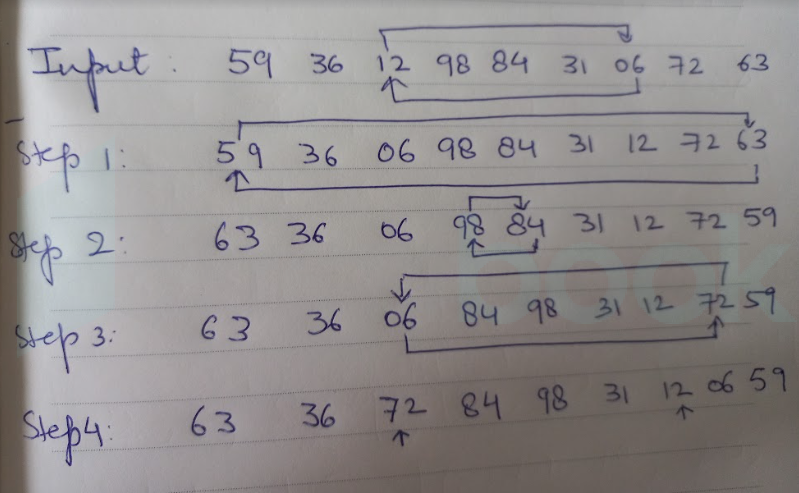 Input : 59 36 12 98 84 31 06 72 63
Step 1: 59 36 06 98 84 31 12 72 63
Step 2: 63 36 06 98 84 31 12 72 59
Step 3: 63 36 06 84 98 31 12 72 59
Step4: 63 36 72 84 98 31 12 06 59
book